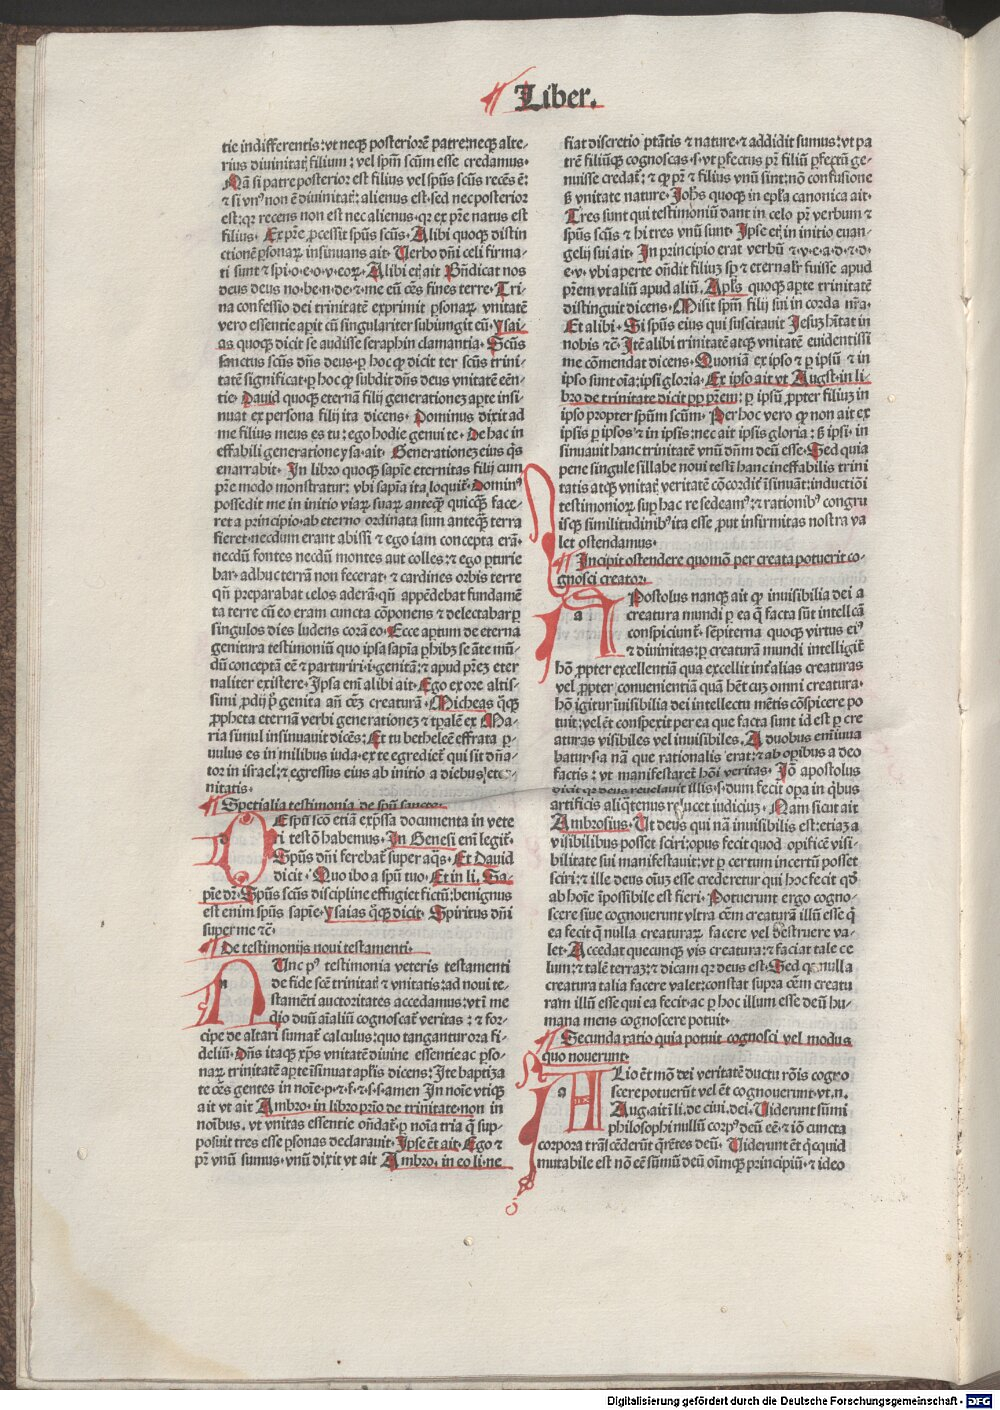 Liber.
tie indifferentis: vt neqꝫ posteriorē patre: neqꝫ alte-
rius diuinitatꝭ filium: vel spm̄ scm̄ esse credamus.
Nā si patre posterior est filius vel spūs scūs recēs ē:
⁊ si vnꝰ non ē diuinitatꝭ: alienus est. sed nec posterior
est: qꝛ recens non est nec alienus. qꝛ ex pr̄e natus est
filius. Ex pr̄e ꝓcessit spūs scūs. Alibi quoqꝫ distin
ctionē ꝑsonaꝝ insinuans ait. Verbo dn̄i celi firma-
ti sunt ⁊ spi.o.e.o.v.eoꝝ. Alibi etiꝫ ait Bn̄dicat nos
deus deus no. be. n. de. ⁊ me. eū cēs fines terre. Tri
na confessio dei trinitatē exprimit ꝑsonaꝝ. vnitatē
vero essentie aꝑit cū singulariter subiungit eū. Ysai
as quoqꝫ dicit se audisse seraphin clamantia. Scūs
sanctus scūs dn̄s deus. ꝑ hoc ꝙ dicit ter scūs trini
tatē significat. ꝑ hoc ꝙ subdit dn̄s deus vnitatē eēn
tie. Dauid quoqꝫ eternā filij generationeꝫ aꝑte insi
nuat ex persona filij ita dicens. Dominus dixit ad
me filius meus es tu: ego hodie genui te. De hac in
effabili generatione ysa. ait. Generationeꝫ eius qͥs
enarrabit. In libro quoqꝫ sapīe eternitas filij cum
pr̄e modo monstratur: vbi sapīa ita loquitꝭ. Dominꝰ
possedit me in initio viaꝝ suaꝝ anteqꝫ̄ quicqꝫ̄ face-
ret a principio. ab eterno ordinata sum anteqꝫ̄ terra
fieret. necdum erant abissi ⁊ ego iam concepta erā.
necdū fontes necdū montes aut colles: ⁊ ego ꝑturie
bar. adhuc terrā non fecerat. ⁊ cardines orbis terre
qn̄ preparabat celos aderā. qn̄ appēdebat fundamē
ta terre cū eo eram cuncta cōponens ⁊ delectabar ꝑ
singulos dies ludens corā eo. Ecce apertum de eterna
genitura testimoniū quo ipsa sapīa ꝑhibꝫ se āte mū-
dū conceptā eē ⁊ parturiri .i. genitā: ⁊ apud pr̄eꝫ eter
naliter existere. Ipsa em̄ alibi ait. Ego ex ore altis-
simi ꝓdij pͥ genita an̄ cēꝫ creaturā. Micheas qͦqꝫ
ꝓpheta eternā verbi generationeꝫ ⁊ tꝑalē ex Ma-
ria simul insinuauit dicēs: Et tu bethleē effrata ꝑ-
uulus es in milibus iuda. ex te egredietꝭ qui sit dn̄a-
tor in israel: ⁊ egressus eius ab initio a diebus eter-
nitatis.
Spetialia testimonia de spū sancto.
De spū scō etiā exp̄ssa documenta in vete
ri testō habemus. In Genesi em̄ legitꝭ.
Spūs dn̄i ferebatꝭ super aqͣs. Et dauid
dicit. Quo ibo a spū tuo. Et in li. Sa-
pīe dr̄. Spūs scūs discipline effugiet fictū: benignus
est enim spūs sapīe. Ysaias qͦqꝫ dicit. Spiritus dn̄i
super me ⁊c̄.
De testimonijs noui testamenti.
Nunc pꝰ testimonia veteris testamenti
de fide scē trinitatꝭ ⁊ vnitatis: ad noui te-
stamēti auctoritates accedamus: vt ī me
dio duū aīaliū cognoscatꝭ veritas: ⁊ for-
cipe de altari sumatꝭ calculus: quo tangantur ora fi-
deliū. Dn̄s itaqꝫ xp̄s vnitatē diuine essentie ac ꝑso-
naꝝ trinitatē aꝑte īsinuat apl̄is dicens: Ite baptiza
te oēs gentes in noīe. p. ⁊. f. ⁊. s. s. amen In noīe vtiqꝫ
ait vt ait Ambro. in libro pr̄io de trinitate. non in
noībus. vt vnitas essentie on̄datꝭ. ꝑ noīa tria q̄ sup-
posuit tres esse ꝑsonas declarauit. Ipse ēt ait. Ego ⁊
pr̄ vnū sumus. vnū dixit vt ait Ambro. in eo li. ne
fiat discretio ptātis ⁊ nature. ⁊ addidit sumus: vt pa
trē filiūqꝫ cognoscas .s. vt ꝑfectus pr̄ filiū ꝑfectū ge-
nuisse credatꝭ: ⁊ ꝙ pr̄ ⁊ filius vnū sint: nō confusione
ß vnitate nature. Johēs quoqꝫ in epl̄a canonica ait.
Tres sunt qui testimoniū dant in celo pr̄ verbum ⁊
spūs scūs ⁊ hi tres vnū sunt. Ipse etiꝫ in initio euan-
gelij sui ait. In principio erat verbū ⁊. v. e. a. d. ⁊. d.
e. v. vbi aperte on̄dit filiuꝫ sꝑ ⁊ eternalꝭr fuisse apud
pr̄em vt aliū apud aliū. Apl̄s quoqꝫ aꝑte trinitatē
distinguit dicens. Misit spm̄ filij sui in corda nr̄a.
Et alibi. Si spūs eius qui suscitauit Jesuꝫ hītat in
nobis ⁊c̄. Itē alibi trinitatē atqꝫ vnitatē euidentissi
me cōmendat dicens. Quoniā ex ipso ⁊ ꝑ ipsū ⁊ in
ipso sunt oīa: ipsi gloria. Ex ipso ait vt Augst. in li-
bro de trinitate dicit ꝓpͭ pr̄em: ꝑ ipsū ꝓpter filiuꝫ in
ipso propter spūm scūm. Per hoc vero ꝙ non ait ex
ipsis ꝑ ipsos ⁊ in ipsis: nec ait ipsis gloria: ß ipsi. in
sinuauit hanc trinitatē vnū dn̄m deū esse. Sed quia
pene singule sillabe noui testꝭ hanc ineffabilis trini
tatis atqꝫ vnitatꝭ veritatē cōcorditꝭ īsinuāt: inductiōi
testimonioꝝ suꝑ hac re sedeamꝰ: ⁊ rationibꝰ congru
isqꝫ similitudinibꝰ ita esse ꝓut infirmitas nostra va
let ostendamus.
Incipit ostendere quomō per creata potuerit co-
gnosci creator.
a
Apostolus nanqꝫ ait ꝙ inuisibilia dei a
creatura mundi ꝑ ea q̄ facta sūt intellcā
conspiciuntꝭ. sēpiterna quoqꝫ virtus eiꝰ
⁊ diuinitas: ꝑ creaturā mundi intelligitꝭ
hō ꝓpter excellentiā qua excellit intꝭ alias creaturas
vel ꝓpter conuenientiā quā hēt cuꝫ omni creatura.
hō igitur inuisibilia dei intellectu mētis cōspicere po
tuit: vel ēt conspexit per ea que facta sunt id est ꝑ cre
aturas visibiles vel inuisibiles. A duobus em̄ iuua
batur .s. a nā que rationalis erat: ⁊ ab oꝑibus a deo
factis: vt manifestaretꝭ hōi veritas. Iō apostolus
dicit qꝛ deus reuelauit illis .s. dum fecit oꝑa in qͥbus
artificis aliqͣtenus relucet iudiciuꝫ. Nam sicut ait
Ambrosius. Vt deus qui nā inuisibilis est: etiaꝫ a
visibilibus posset sciri: opus fecit quod opificē visi-
bilitate sui manifestauit: vt ꝑ certum incertū posset
sciri: ⁊ ille deus oīuꝫ esse crederetur qui hoc fecit qd̄
ab hoīe īpossibile est fieri. Potuerunt ergo cogno-
scere siue cognouerunt vltra cēm creaturā illū esse q̄
ea fecit q̄ nulla creaturaꝝ facere vel destruere va-
let. Accedat quecunqꝫ vis creatura: ⁊ faciat tale ce
lum: ⁊ talē terraꝫ: ⁊ dicam qꝛ deus est. Sed qꝛ nulla
creatura talia facere valet: constat supra cēm creatu
ram illū esse qui ea fecit. ac ꝑ hoc illum esse deū hu-
mana mens cognoscere potuit.
Secunda ratio quia potuit cognosci vel modus
quo nouerunt.
a
Alio ēt mō dei veritatē ductu rōis cogno
scere potuerūt vel ēt cognouerunt. vt. n.
Aug. ait ī li. de ciui. dei. Viderunt sūmi
philosophi nullū corpꝰ deū eē. ⁊ iō cuncta
corpora trāscēderūt qͣrētes deū. Viderunt ēt qͥcquid
mutabile est nō eē sūmū deū oīmqꝫ principiū. ⁊ ideo
Digitalisierung gefördert durch die Deutsche Forschungsgemeinschaft - DFG